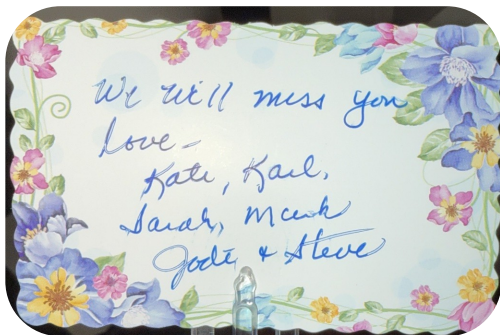 We will miss you
Love -
Kate, Karl,
Sarah, Mark
Jodi & Steve